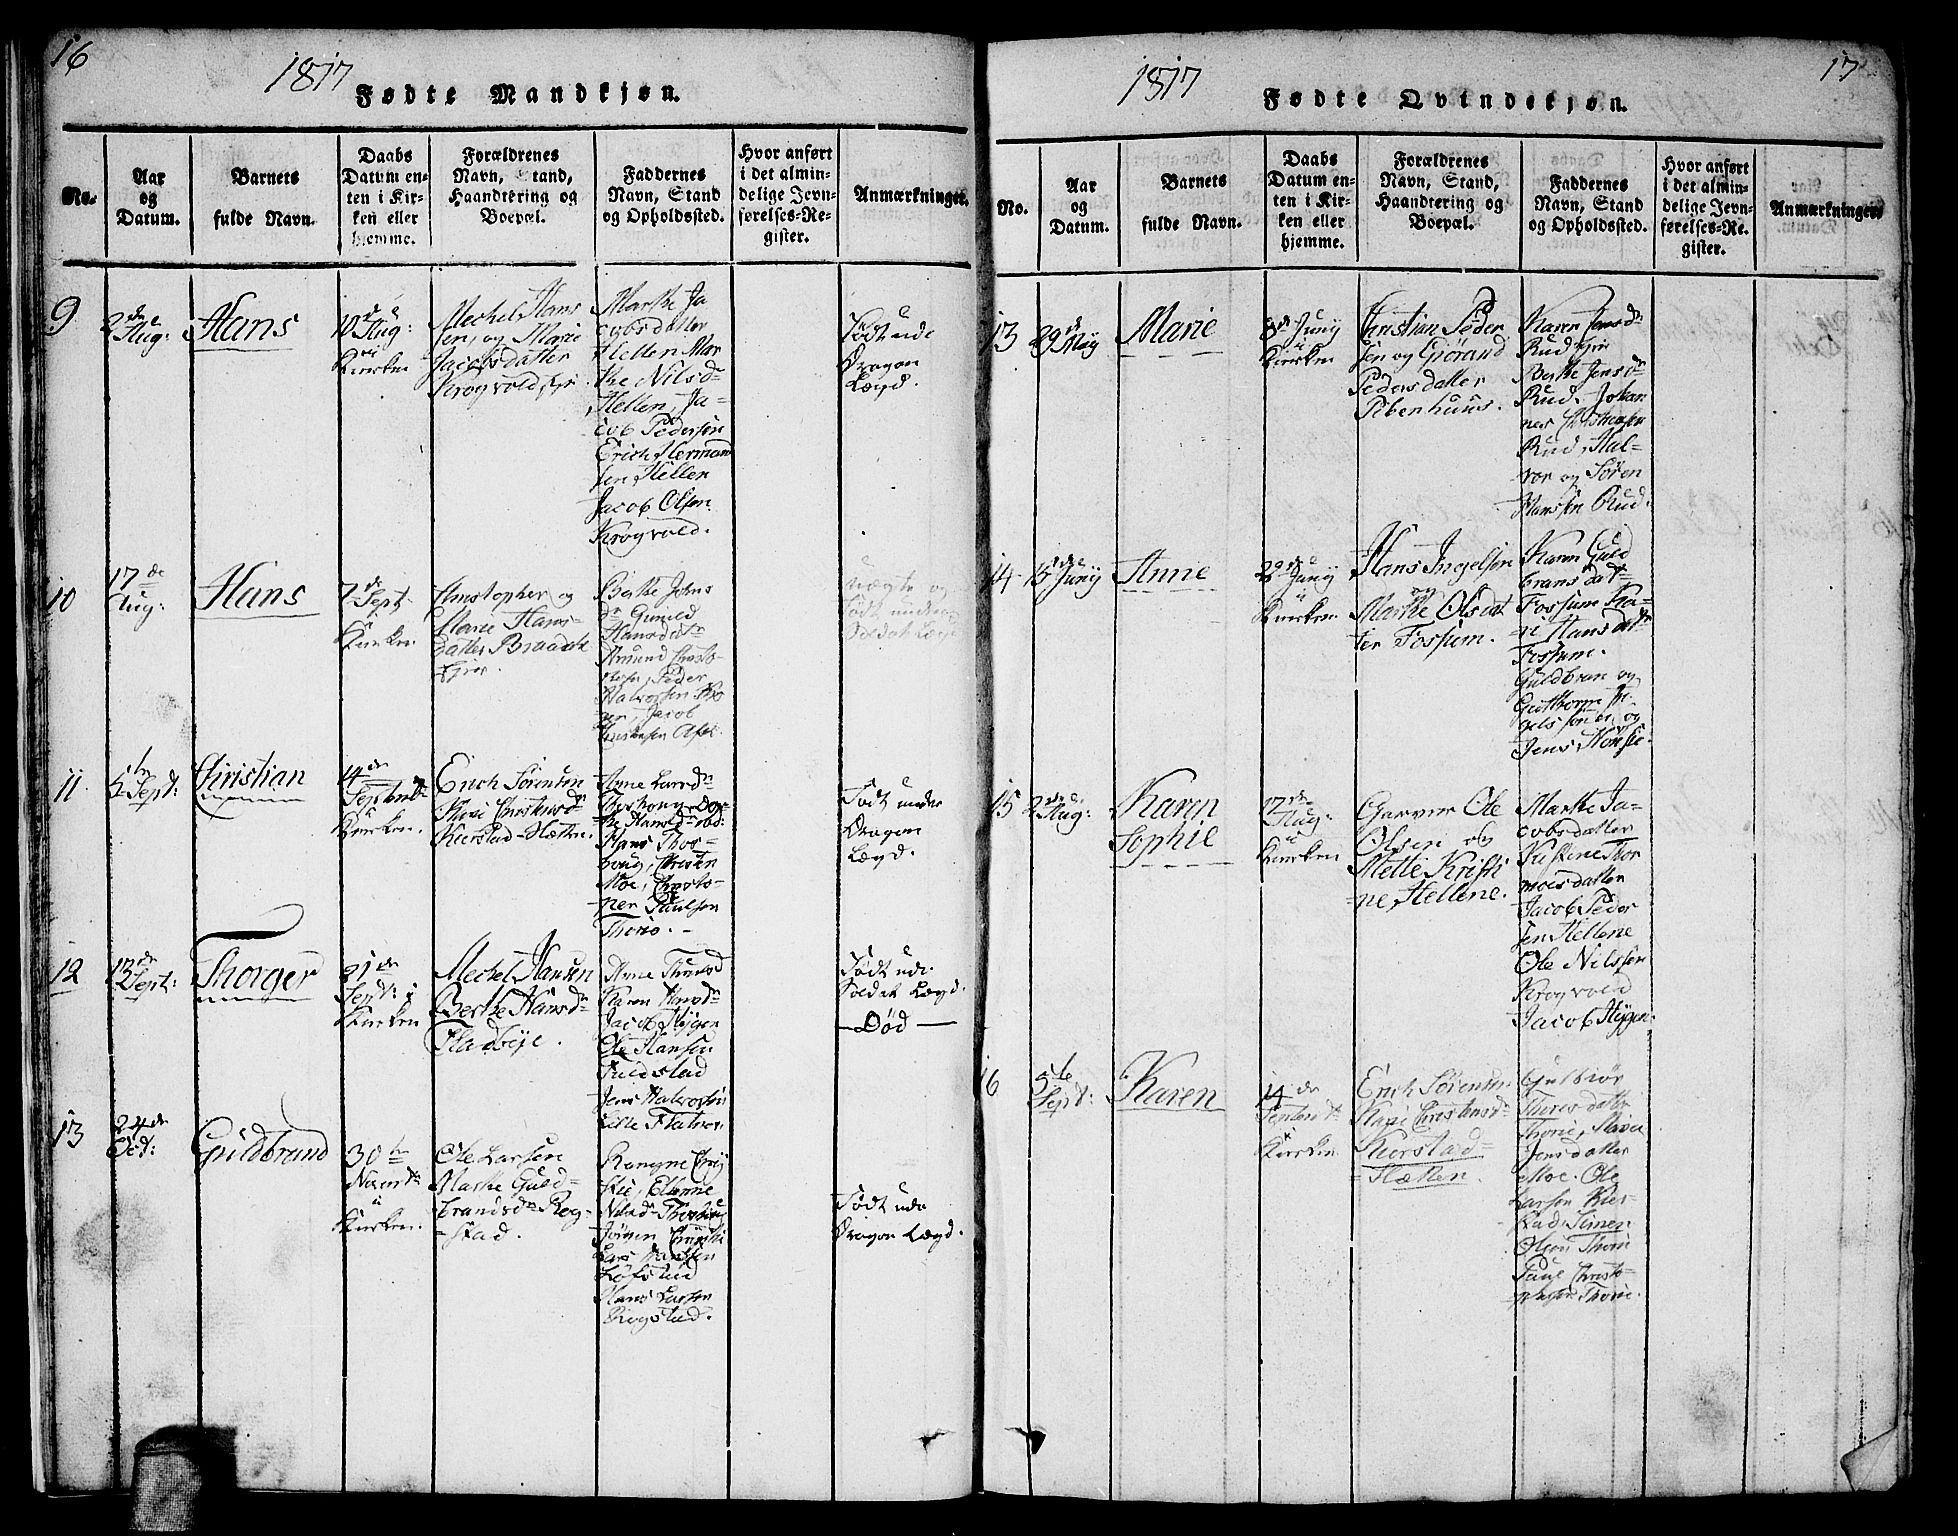 16
1817
Fødte Mandkjøn.
No.
Aar
og
Datum.
Barnets
fulde Navn.
Daabs
Datum en-
ten i Kir-
ken eller
hjemme.
Forældrenes
Navn, Stand,
Haandtering og
Boepæl.
Faddernes
Navn, Stand
og Opholdssted.
Hvor anført
i det almin-
delige Jevn-
førelses-Re-
gister.
Anmærkninger.
9
2den
Aug:
Hans
10de
Aug:
Kirken
Mechel Hans
sen, og Marie
Jacobsdatter
Krogvold
Marthe Ja
cobsdatter
Hellen Mar
the Nilsdr
Hellen, Ja-
cob Pedersøn
Erich Herman
sen, Hellen
Jacob Olsøn
Krogvold.
Født
Dragon
Lægd.
10
17de
Aug:
Hans
7de Sept.
Kirken
Christopher og
Marie Hans-
datter Braata
Eier
Berthe Johns
dr Gunild
Hansdatr
Amund Christo-
Peder
Halvorsen
Jacob
Født under
Soldat Lægd
11
5th
Sept:
Christian
14de
Septembr
Kirken.
Erich Sørensen
Mari Christensdr
Kierstad-Hætten.
Anne Larsdr
the Hansdr
Hans Thos-
boug, Christen
Moe, Christo-
pher Paulsen
Thorie.
Født under
Dragon
Lægd.
12
13de
Sept:
Thorger
21de
Sept: i
Kirken
Mechel Hansen
Berthe Hansdr
Fladbye.
Anne
Karen Hansdr
Jacob Hygen
Ole Hansen
Fuldstad
Jens Halvorsen
Lille
Født
Soldat Lægd.
Død
13
24de
Oct:
Guldbrand
30th
Novembr
Kirken.
Ole Larsen
Marthe Guld-
brandsdr Reg-
stad.
Rangne
Jørgen
Lars Hansen
Løfstad
Hans Larsen
Rogstad.
Født
Dragon Lægd.
17
1817
Fødte Qvindekjøn.
No.
Aar
og
Datum.
Barnets
fulde Navn.
Daabs
Datum en-
ten i Kir-
ken eller
hjemme.
Forældrenes
Navn, Stand,
Haandtering og
Boepæl.
Faddernes
Navn, Stand
og Opholdssted.
Hvor anført
i det almin-
delige Jevn-
førelses-Re-
gister.
Anmærkninger
13
29de May
Marie
8de Juny
Kirken
Christian Peder
sen og Giørand
Pedersdatter
Pibenhuus.
Karen Jensdr
Rud Eier
Berthe Jensdr
Rud. Johan
nes Christensen
Rud, Hal-
vor og Søren
Hanssøn Rud.
14
15de
Juny
Anne
29de
Juny
Kirken
Hans Ingelsøn
og
Marthe Olsdat
ter Fossum.
Karen Guld
bransdatr
Fossum Ka-
ri Hansdatr
Fossum.
Guldbran og
Gutthorm In-
gelssøner, og
Jens
15
2den
Aug:
Karen
Sophie
17de
Aug:
Kirken
Garver Ole
Olsen og
Mette Kristi
ne, Hellene.
Marthe Ja-
cobsdatter
Kistine Thor
moesdatter
Jacob Peder
sen Hellene
Ole Nilssøn
Krogvold
Jacob Hygen.
16
5te
Sept:
Karen
14de
Septembr
Kirken
Erich Sørensen
Mari Christensdr
Kierstad-
Hætten.
Thoresdatter
Thorie, Maria
Jensdatter
Moe. Ole
Larsen Kier-
stad. Simen
Olsøn Thorie
Christo-
phersen Thorie.